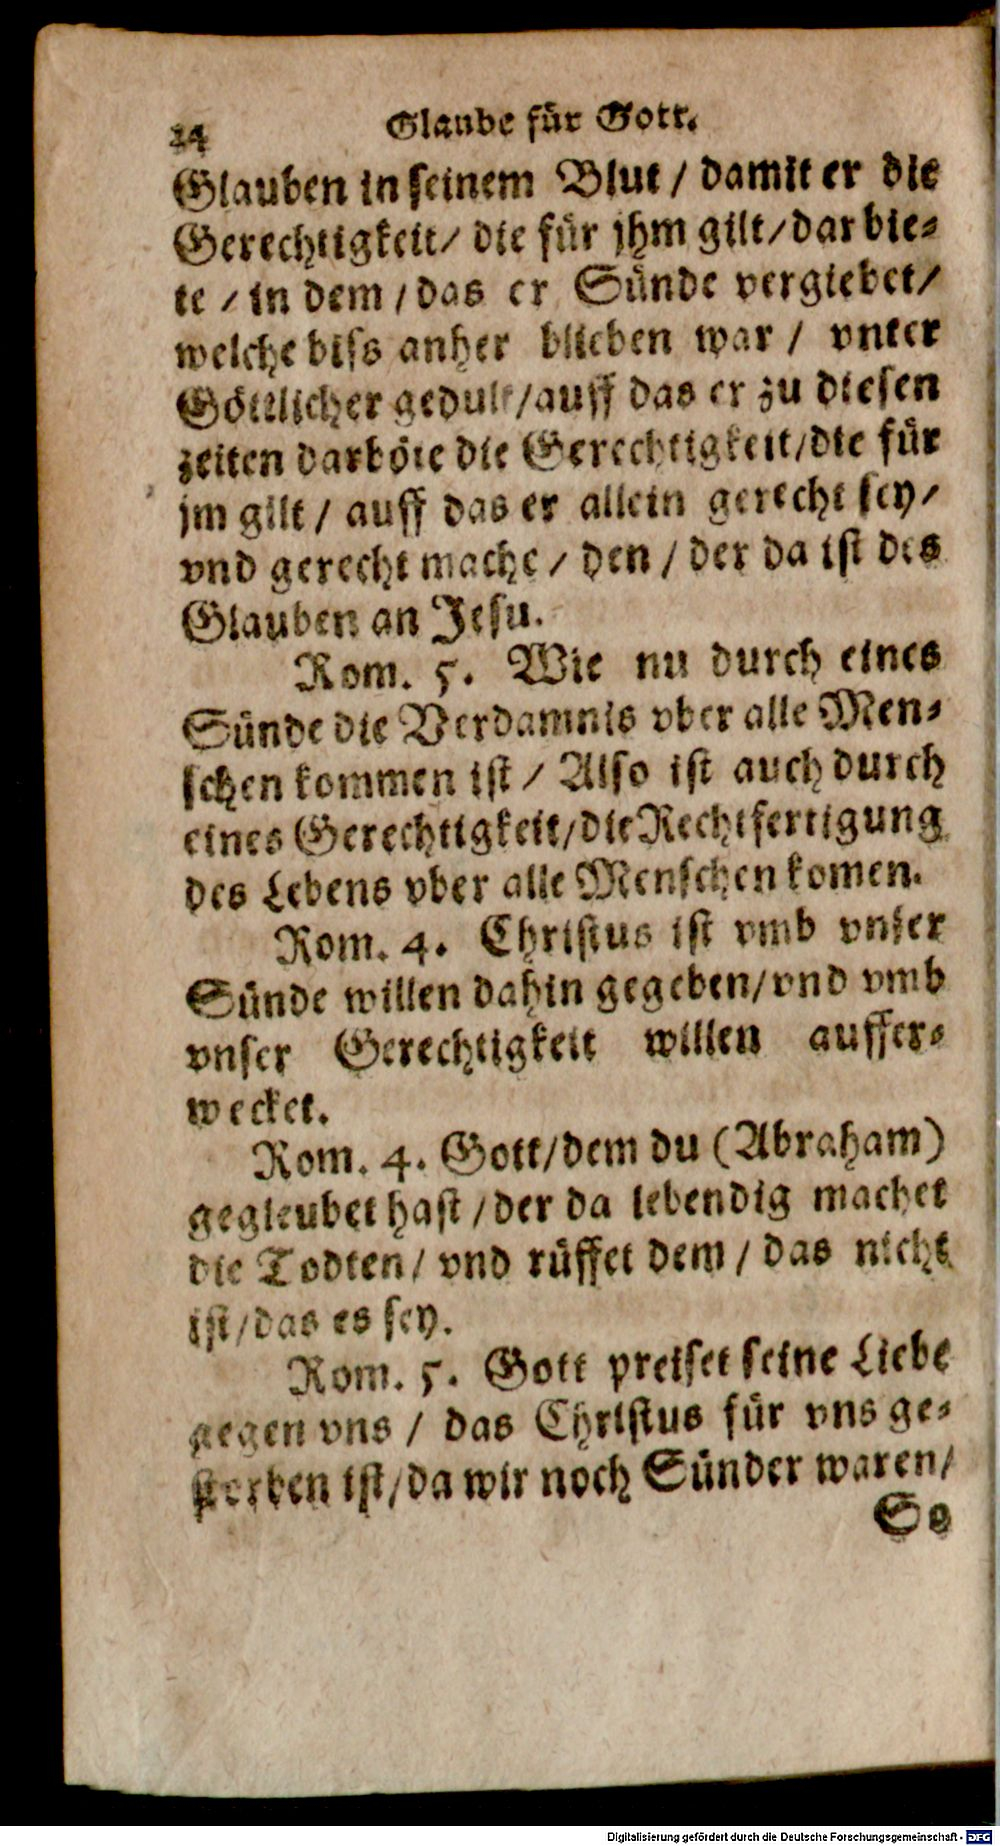 24 Glaube für Gott.
Glauben in seinem Blut / damit er die
Gerechtigkeit / die für jhm gilt / dar bie-
te / in dem / das er Sünde vergiebet /
welche biss anher blieben war / vnter
Göttlicher gedult / auff das er zu diesen
zeiten darböte die Gerechtigkeit / die für
jm gilt / auff das er allein gerecht sey /
vnd gerecht mache / den / der da ist des
Glauben an Jesu.
Rom. 5. Wie nu durch eines
Sünde die Verdamnis vber alle Men-
schen kommen ist / Also ist auch durch
eines Gerechtigkeit / die Rechtfertigung
des Lebens vber alle Menschen komen.
Rom. 4. Christus ist vmb vnser
Sünde willen dahin gegeben / vnd vmb
vnser Gerechtigkeit willen auffer-
wecket.
Rom. 4. Gott / dem du (Abraham)
gegleubet hast / der da lebendig machet
die Todten / vnd rüffet dem / das nicht
ist / das es sey.
Rom. 5. Gott preiset seine Liebe
gegen vns / das Christus für vns ge-
storben ist / da wir noch Sünder waren /
So
Digitalisierung gefördert durch die Deutsche Forschungsgemeinschaft - DFG